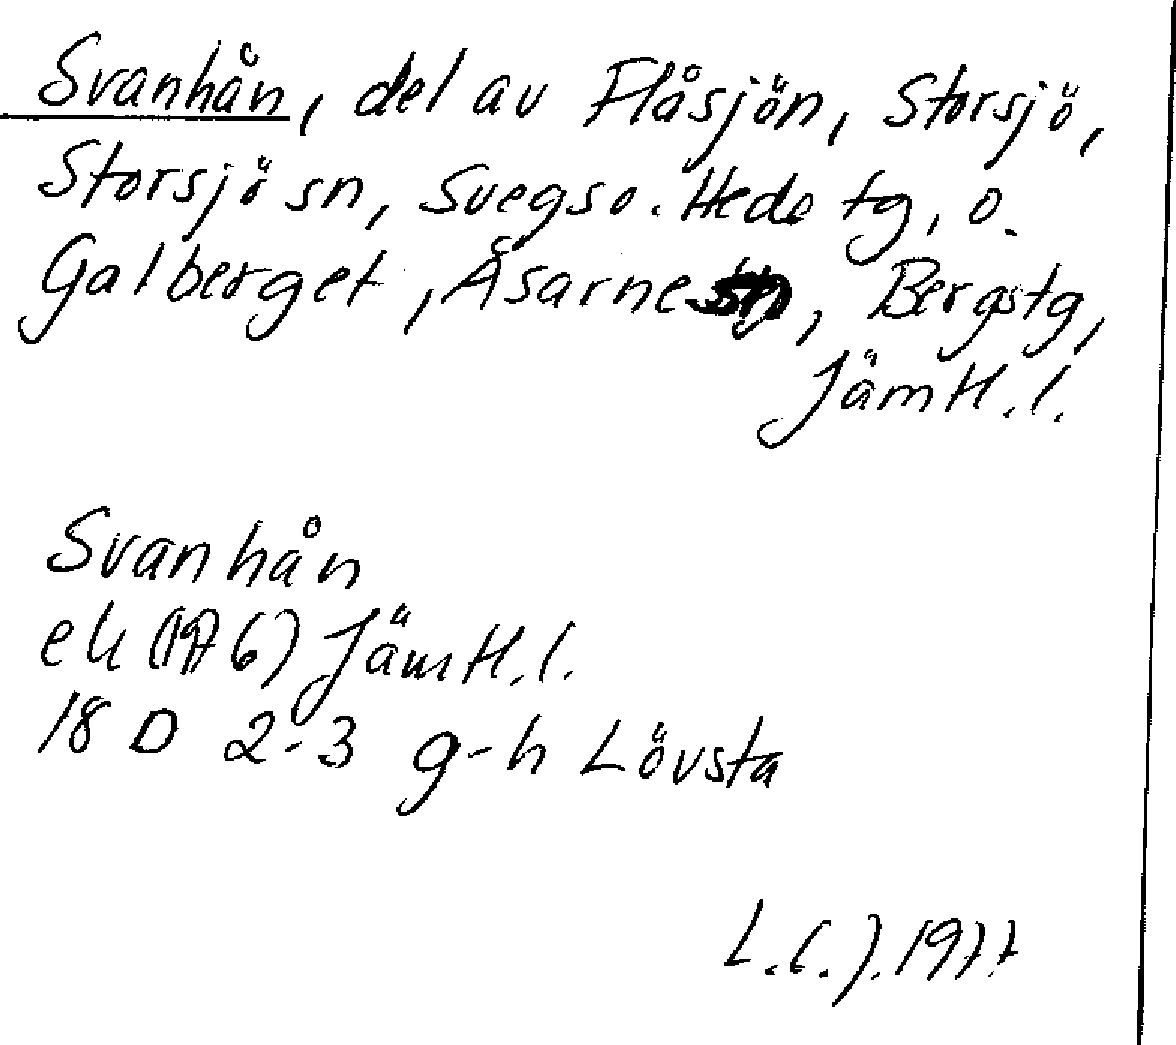 Svanhån, del av Flåsjön, Storsjö,
Storsjö sn, Svegs o. Hede tg, o.
Galberget, Åsarne sn, Bergs tg,
Jämtl. l.
Svanhån
ek (1976) Jämtl. l.
18 D 2-3 g-h Lövsta
1977